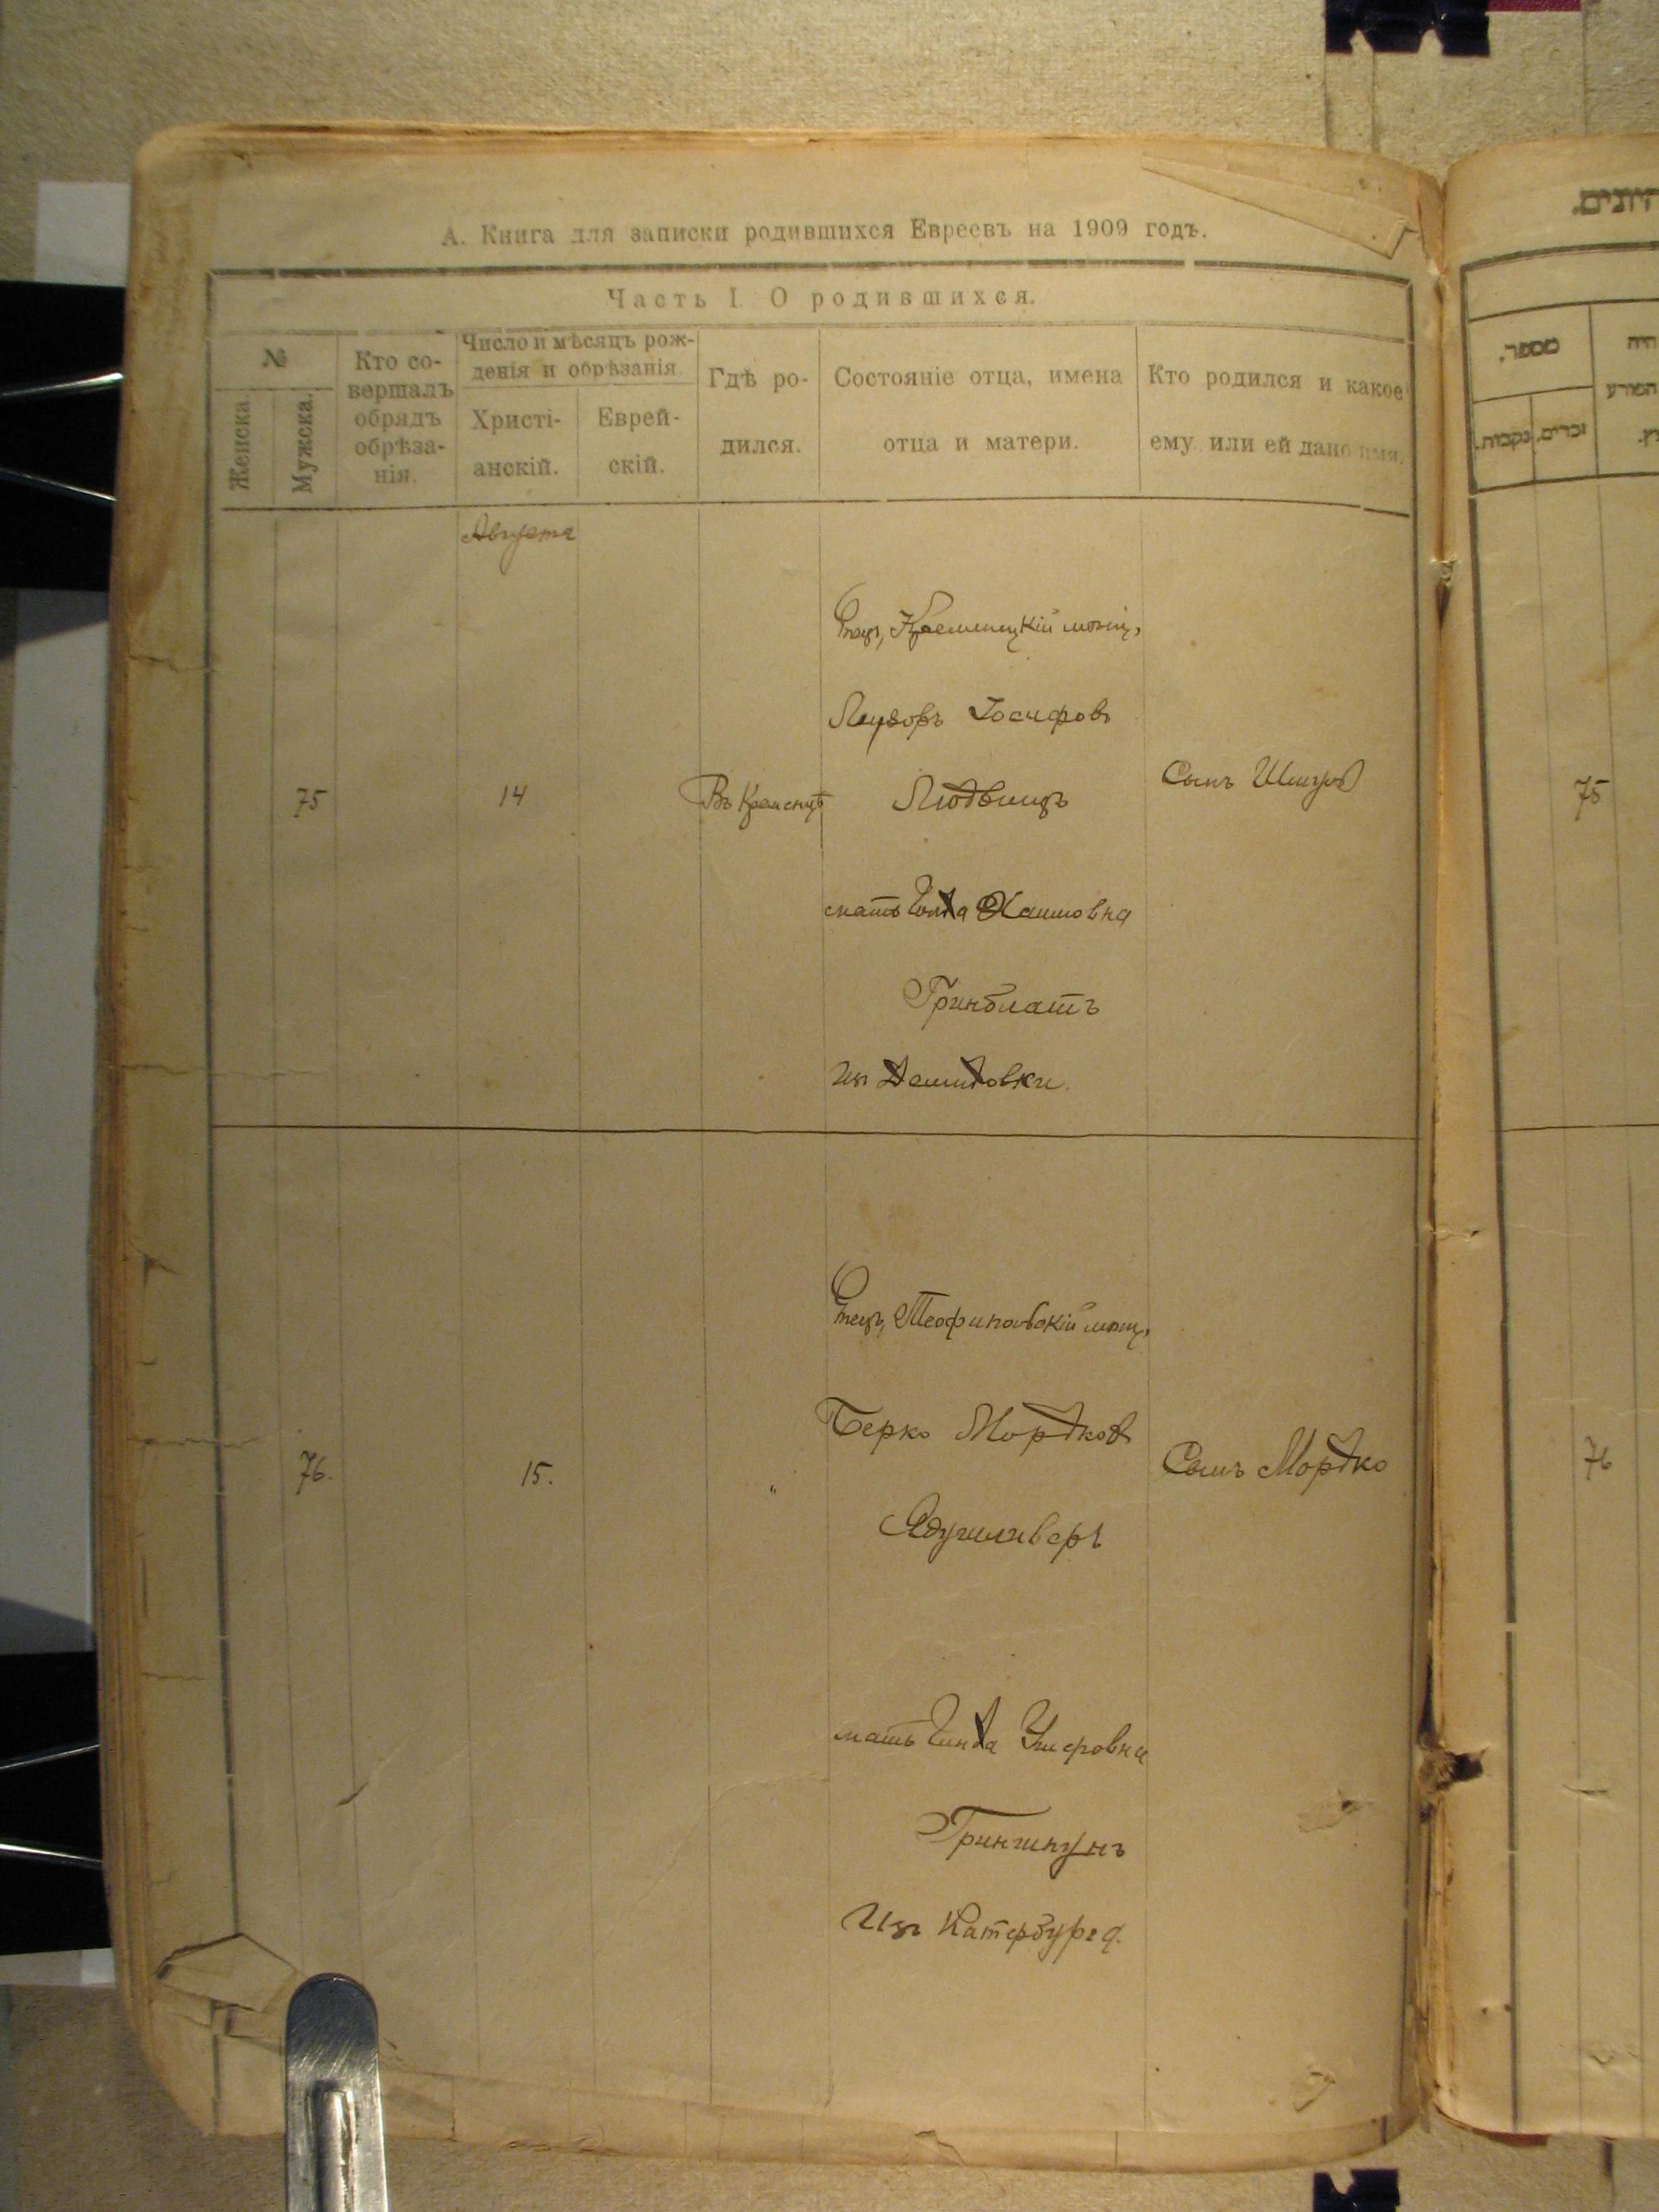 А. Книга для записки родившихся Евреевъ на 1909 годъ.
Часть I. О родившихся.
№
Женска.
Мужска.
Кто со-
вершалъ
обрядъ
обрѣза-
нія.
Число и мѣсяцъ рож-
денія и обрѣзанія.
Христі-
анскій.
Еврей-
скій.
Гдѣ ро-
дился.
Состояніе отца, имена
отца и матери.
Кто родился и какое
ему или ей дано имя.
Августа
75
14
Въ Кременцѣ
Отецъ, Кременецкій мѣщ,
Лейзоръ Іосифовъ
Людвицъ
мать Голда Хаимовна
Гринблатъ
Изъ Демидовки
Сынъ
76.
15.
"
Отецъ, Теофипольскій мѣщ,
Берко Мордков
мать Гинда Ушеровна
Изъ Катербурга.
Сынъ Мордко
היונים.
מספר.
נקבות.
זכרים.
היה
75
76